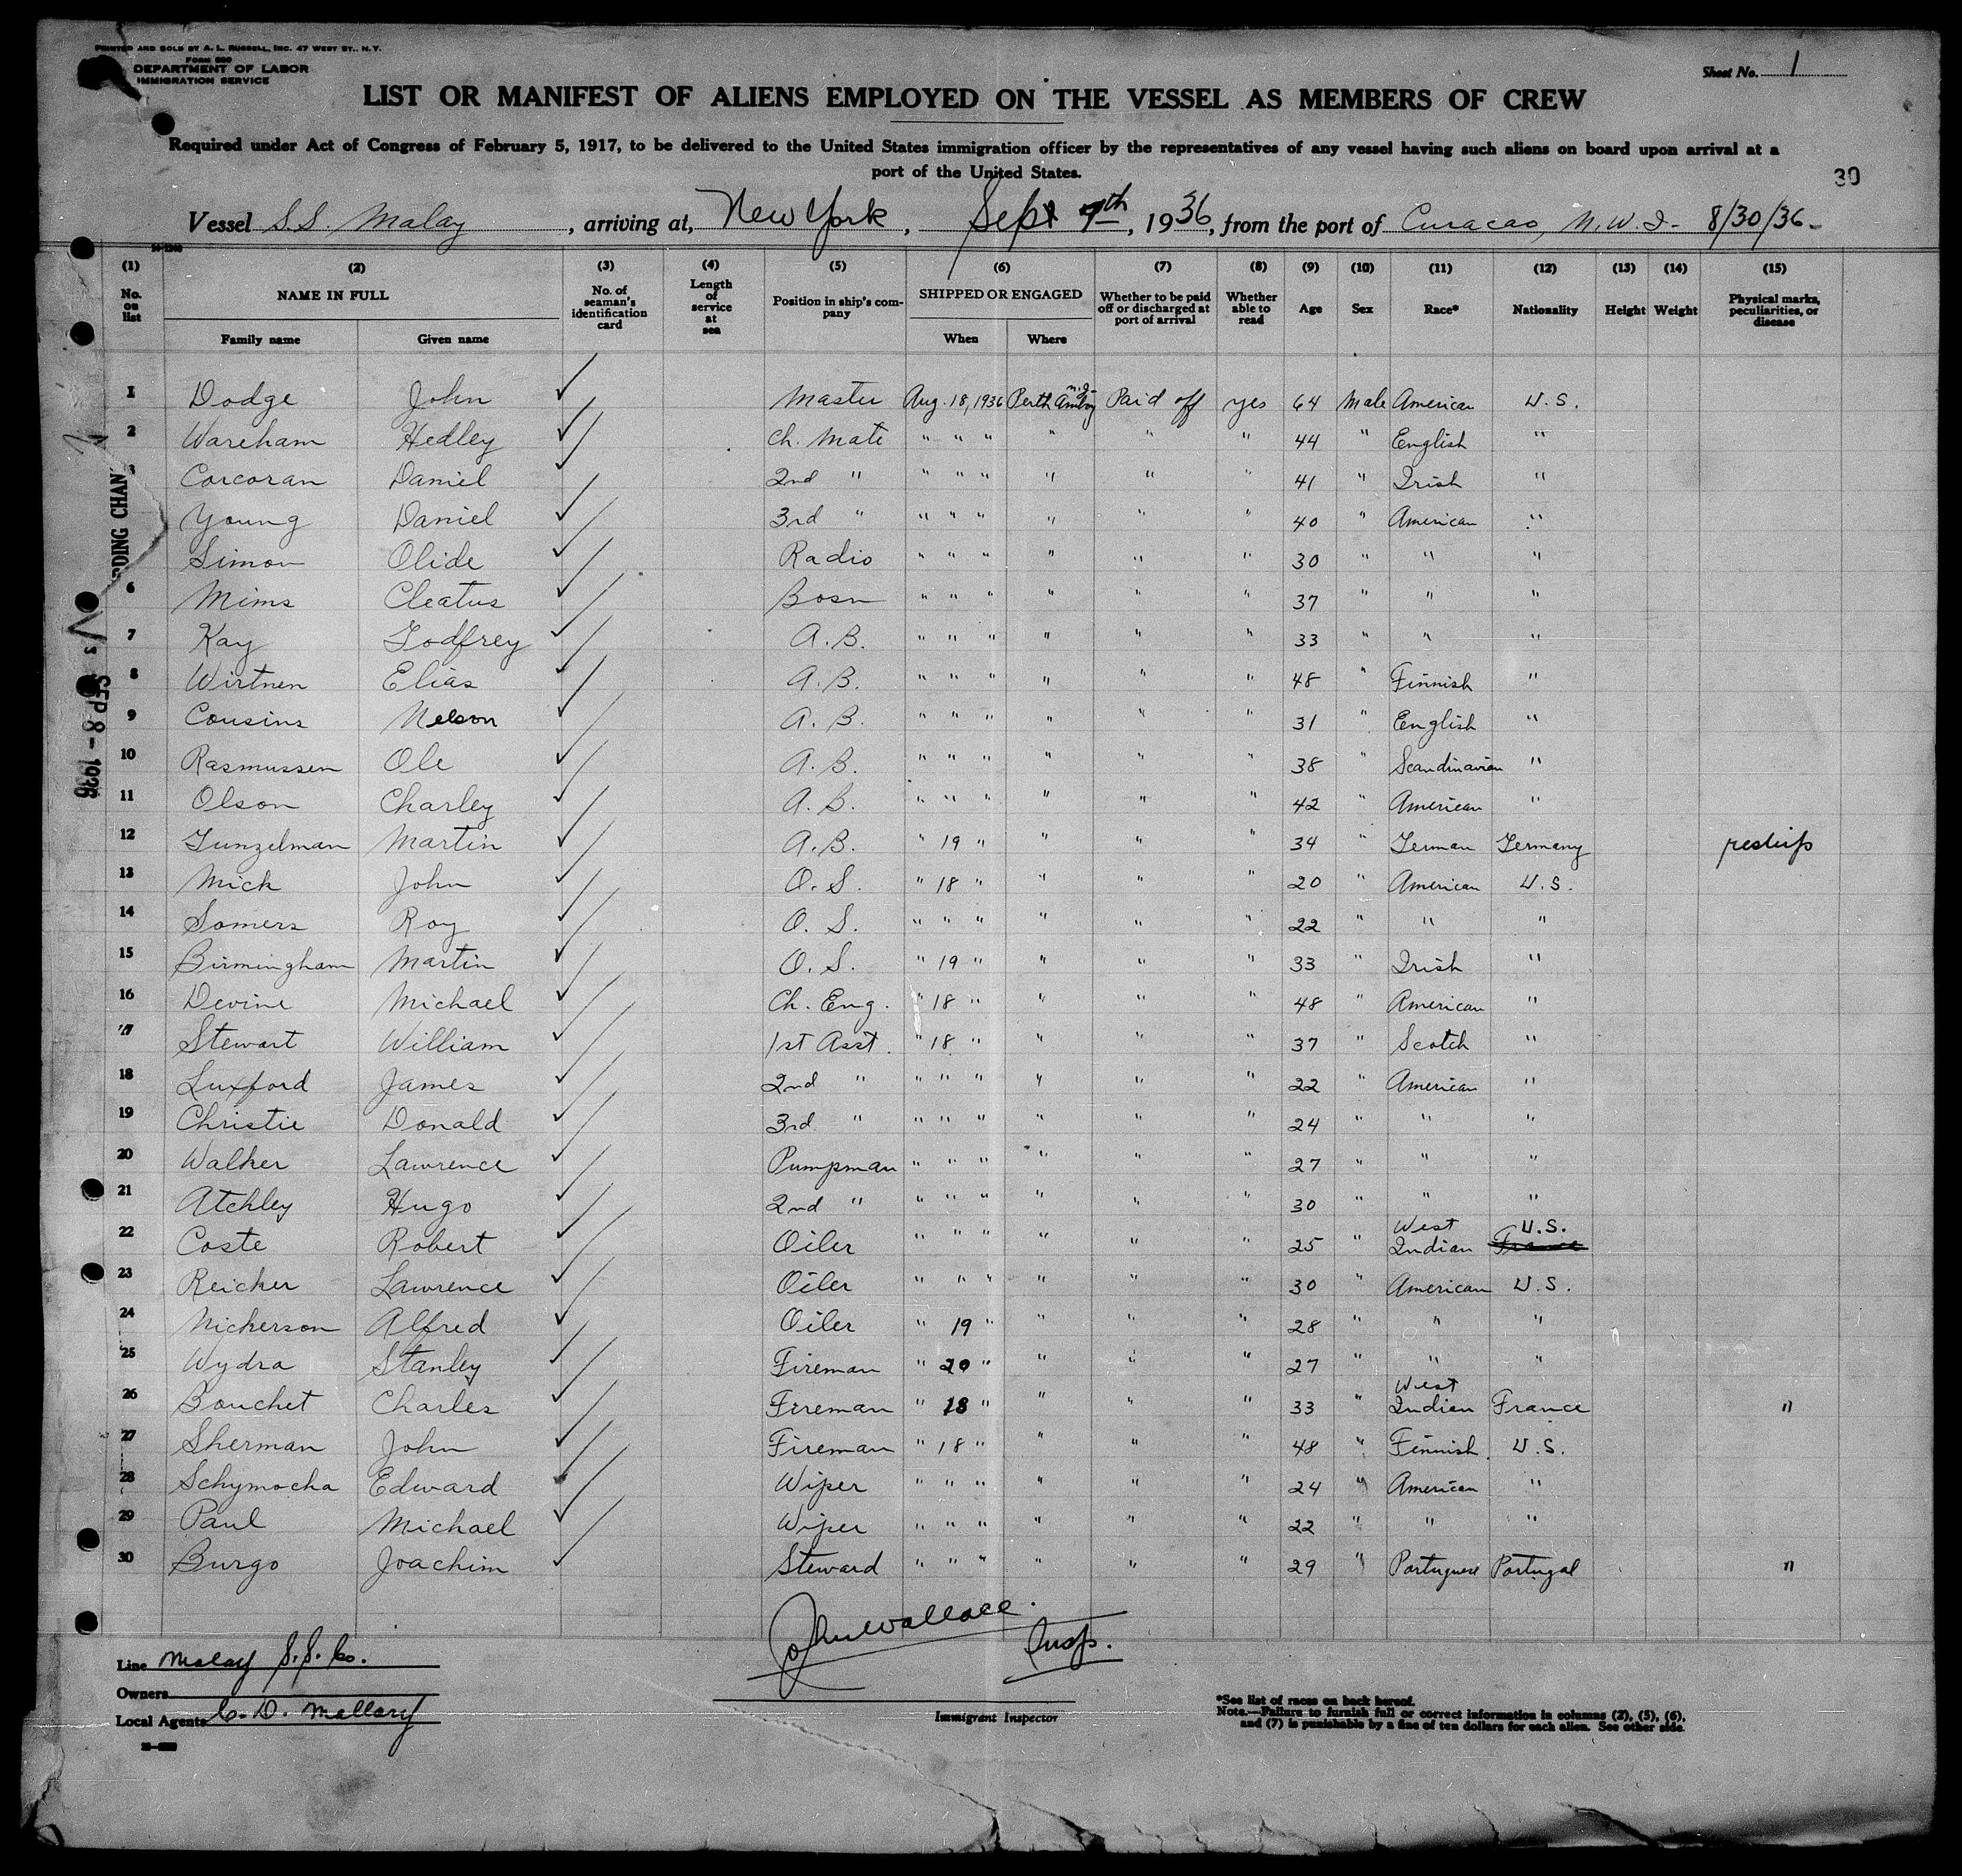 PRINTED AND SOLD BY A. L. RUSSELL, INC. 47 WEST ST., N.Y.
FORM 680
DEPARTMENT OF LABOR
IMMIGRATION SERVICE
Sheet No. 1
LIST OR MANIFEST OF ALIENS EMPLOYED ON THE VESSEL AS MEMBERS OF CREW
Required under Act of Congress of February 5, 1917, to be delivered to the United States immigration officer by the representatives of any vessel having such aliens on board upon arrival at a
port of the United States.
30
Vessel S.S. Malay, arriving at, New York, Sept 7th, 1936, from the port of Curacao, N.W.I. 8/30/36
(1) (2) (3) (4) (5) (6) (7) (8) (9) (10) (11) (12) (13) (14) (15)
No. on list NAME IN FULL Family name Given name No. of seaman's identification card Length of service at sea Position in ship's company SHIPPED OR ENGAGED When Where Whether to be paid off or discharged at port of arrival Whether able to read Age Sex Race* Nationality Height Weight Physical marks, peculiarities, or disease
1 Dodge John ✓ Master Aug. 18, 1936 Perth Amboy N.J. Paid off yes 64 Male American U.S.
2 Wareham Hedley ✓ Ch. Mate " " " " " " 44 " English "
3 Corcoran Daniel ✓ 2nd " " " " " " " 41 " Irish "
Young Daniel ✓ 3rd " " " " " " " 40 " American "
Simon Olide ✓ Radio " " " " " " 30 " " "
6 Mims Cleatus ✓ Bosn " " " " " " 37 " " "
7 Kay Godfrey ✓ A.B. " " " " " " 33 " " "
8 Wirtnen Elias ✓ A.B. " " " " " " 48 " Finnish "
9 Cousins Nelson ✓ A.B. " " " " " " 31 " English "
10 Rasmussen Ole ✓ A.B. " " " " " " 38 " Scandinavian "
11 Olson Charley ✓ A.B. " " " " " " 42 " American "
12 Gunzelman Martin ✓ A.B. " 19 " " " " 34 " German Germany reships
13 Mick John ✓ O.S. " 18 " " " " 20 " American U.S.
14 Somers Roy ✓ O.S. " " " " " " 22 " " "
15 Birmingham Martin ✓ O.S. " 19 " " " " 33 " Irish "
16 Devine Michael ✓ Ch. Eng. " 18 " " " " 48 " American "
17 Stewart William ✓ 1st Asst. " 18 " " " " 37 " Scotch "
18 Luxford James ✓ 2nd " " " " " " " 22 " American "
19 Christie Donald ✓ 3rd " " " " " " " 24 " " "
20 Walker Lawrence ✓ Pumpman " " " " " " 27 " " "
21 Atchley Hugo ✓ 2nd " " " " " " " 30 " " "
22 Coste Robert ✓ Oiler " " " " " " 25 " West Indian U.S. France
23 Reicker Lawrence ✓ Oiler " " " " " " 30 " American U.S.
24 Nickerson Alfred ✓ Oiler " 19 " " " " 28 " " "
25 Wydra Stanley ✓ Fireman " 20 " " " " 27 " " "
26 Bouchet Charles ✓ Fireman " 18 " " " " 33 " West Indian France "
27 Sherman John ✓ Fireman " 18 " " " " 48 " Finnish U.S.
28 Schymocha Edward ✓ Wiper " " " " " " 24 " American "
29 Paul Michael ✓ Wiper " " " " " " 22 " " "
30 Burgo Joachim ✓ Steward " " " " " " 29 " Portuguese Portugal "
SEP 8 - 1936
John Wallace. Insp.
Immigrant Inspector
Line Malay S.S. Co.
Owners
Local Agents C. D. Mallory
*See list of races on back hereof.
Note.—Failure to furnish full or correct information in columns (2), (5), (6),
and (7) is punishable by a fine of ten dollars for each alien. See other side.